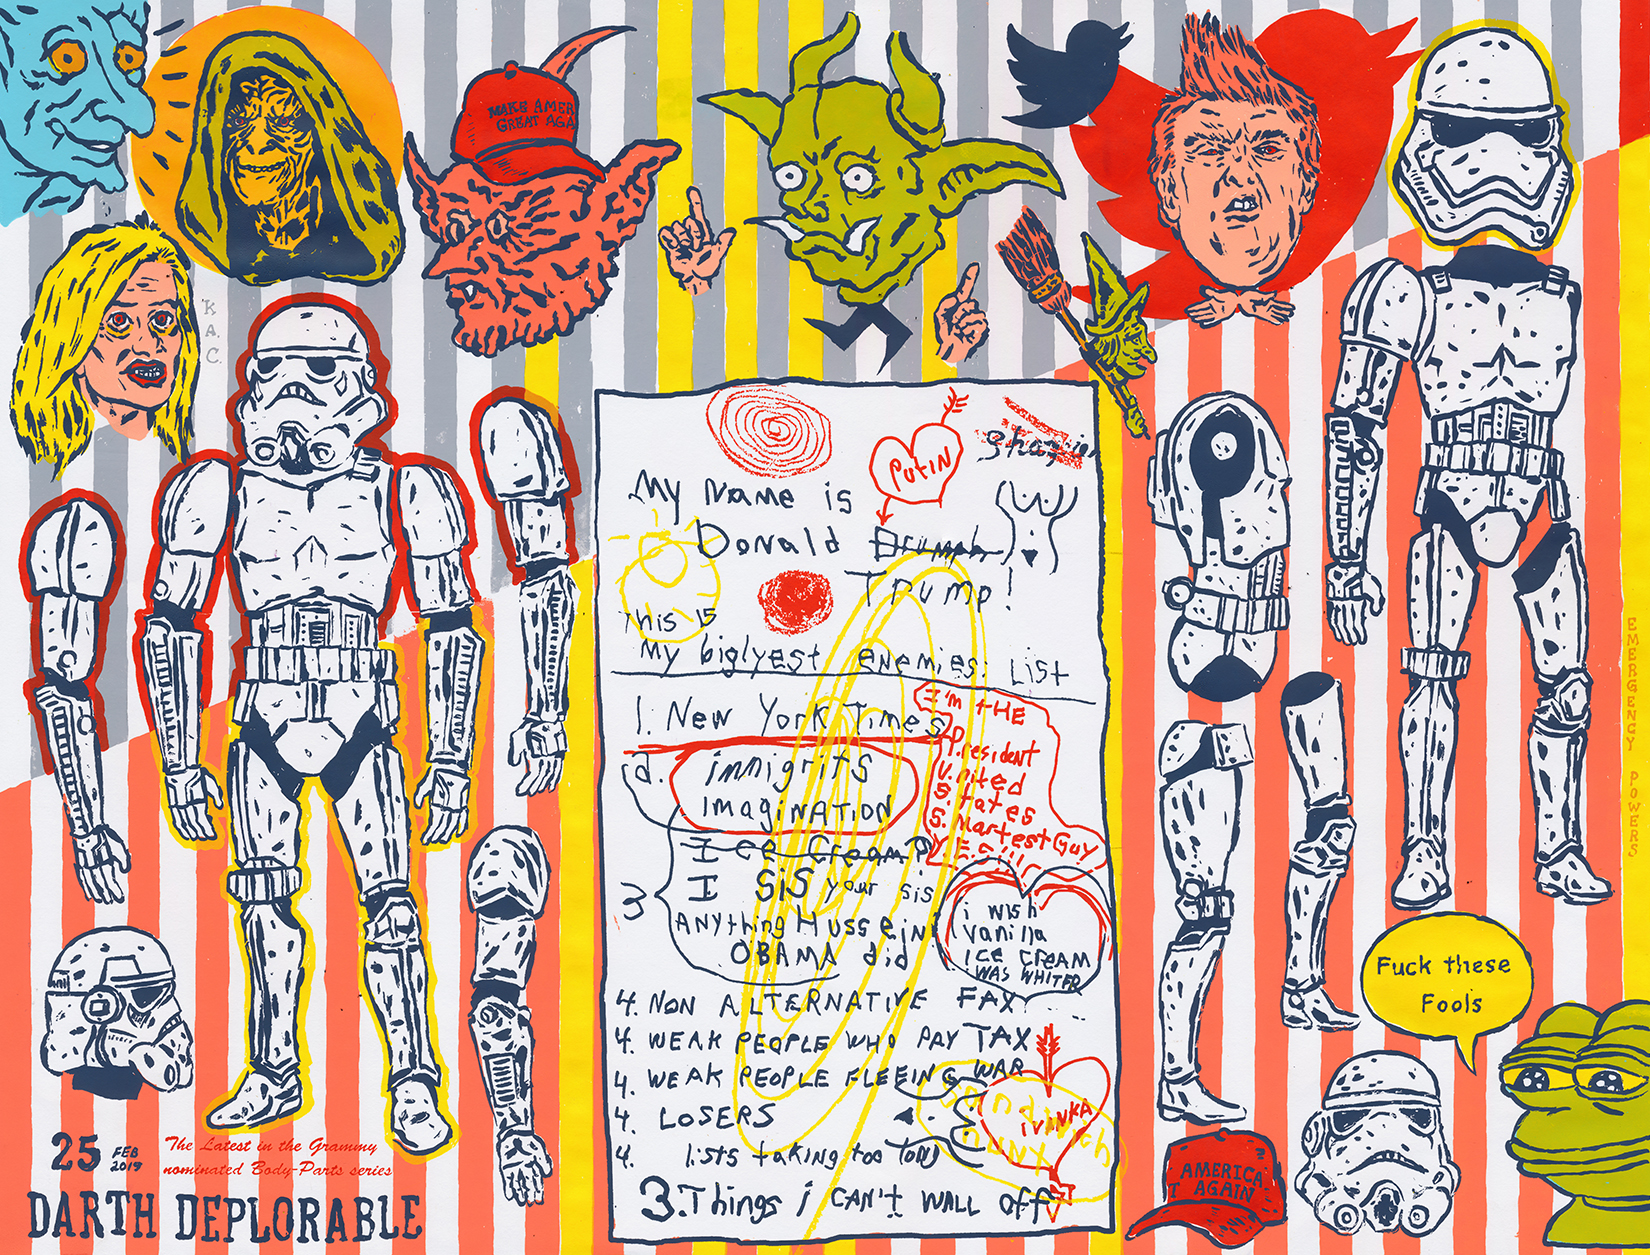 MAKE AMER
GREAT AGA
K.
A.
C.
PUTIN
My Name is
Donald Drumph
Trump!
This is
my biglyest enemies: List
1. New York Times
I'm tHE
President
United
States
S.martestGuy
Y.E.S!!!
2. imnigritS
imagiNATION
Ice Cream?
3 I SiS your sis
ANything Hussein
OBAMA did
i wish
vanilla
ice cream
WAS WHITER
4. NON ALTERNATIVE FAX
4. WEAK PEOPLE WHO PAY TAX
4. WEAK PEOPLE FLEEING WAR
4. LOSERS
iVANKA
4. lists taking too TONJ
3. Things i CAN't WALL off
EMERGENCY POWERS
Fuck these
Fools
AMERICA
T AGAIN ?
25 FEB
2019
The Latest in the Grammy
nominated Body-Parts series
DARTH DEPLORABLE